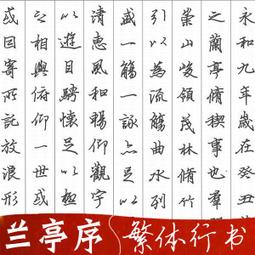 永和九年歲在癸丑
之蘭亭脩稧事也羣
崇山峻領茂林脩竹
引以為流觴曲水列
盛一觴一詠亦足以
清惠風和暢仰觀宇
以遊目騁懷足以極
之相與俯仰一世或
或因寄所託放浪形
兰亭序 繁体行书